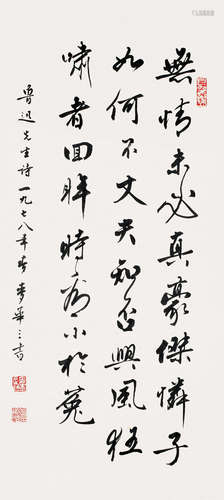 無情未必真豪傑憐子
如何不丈夫知否興風狂
嘯者回眸時看小於菟
魯迅先生詩一九七八年春麥華三書